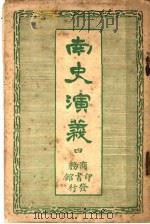 南史演義
四
商務印書館發行